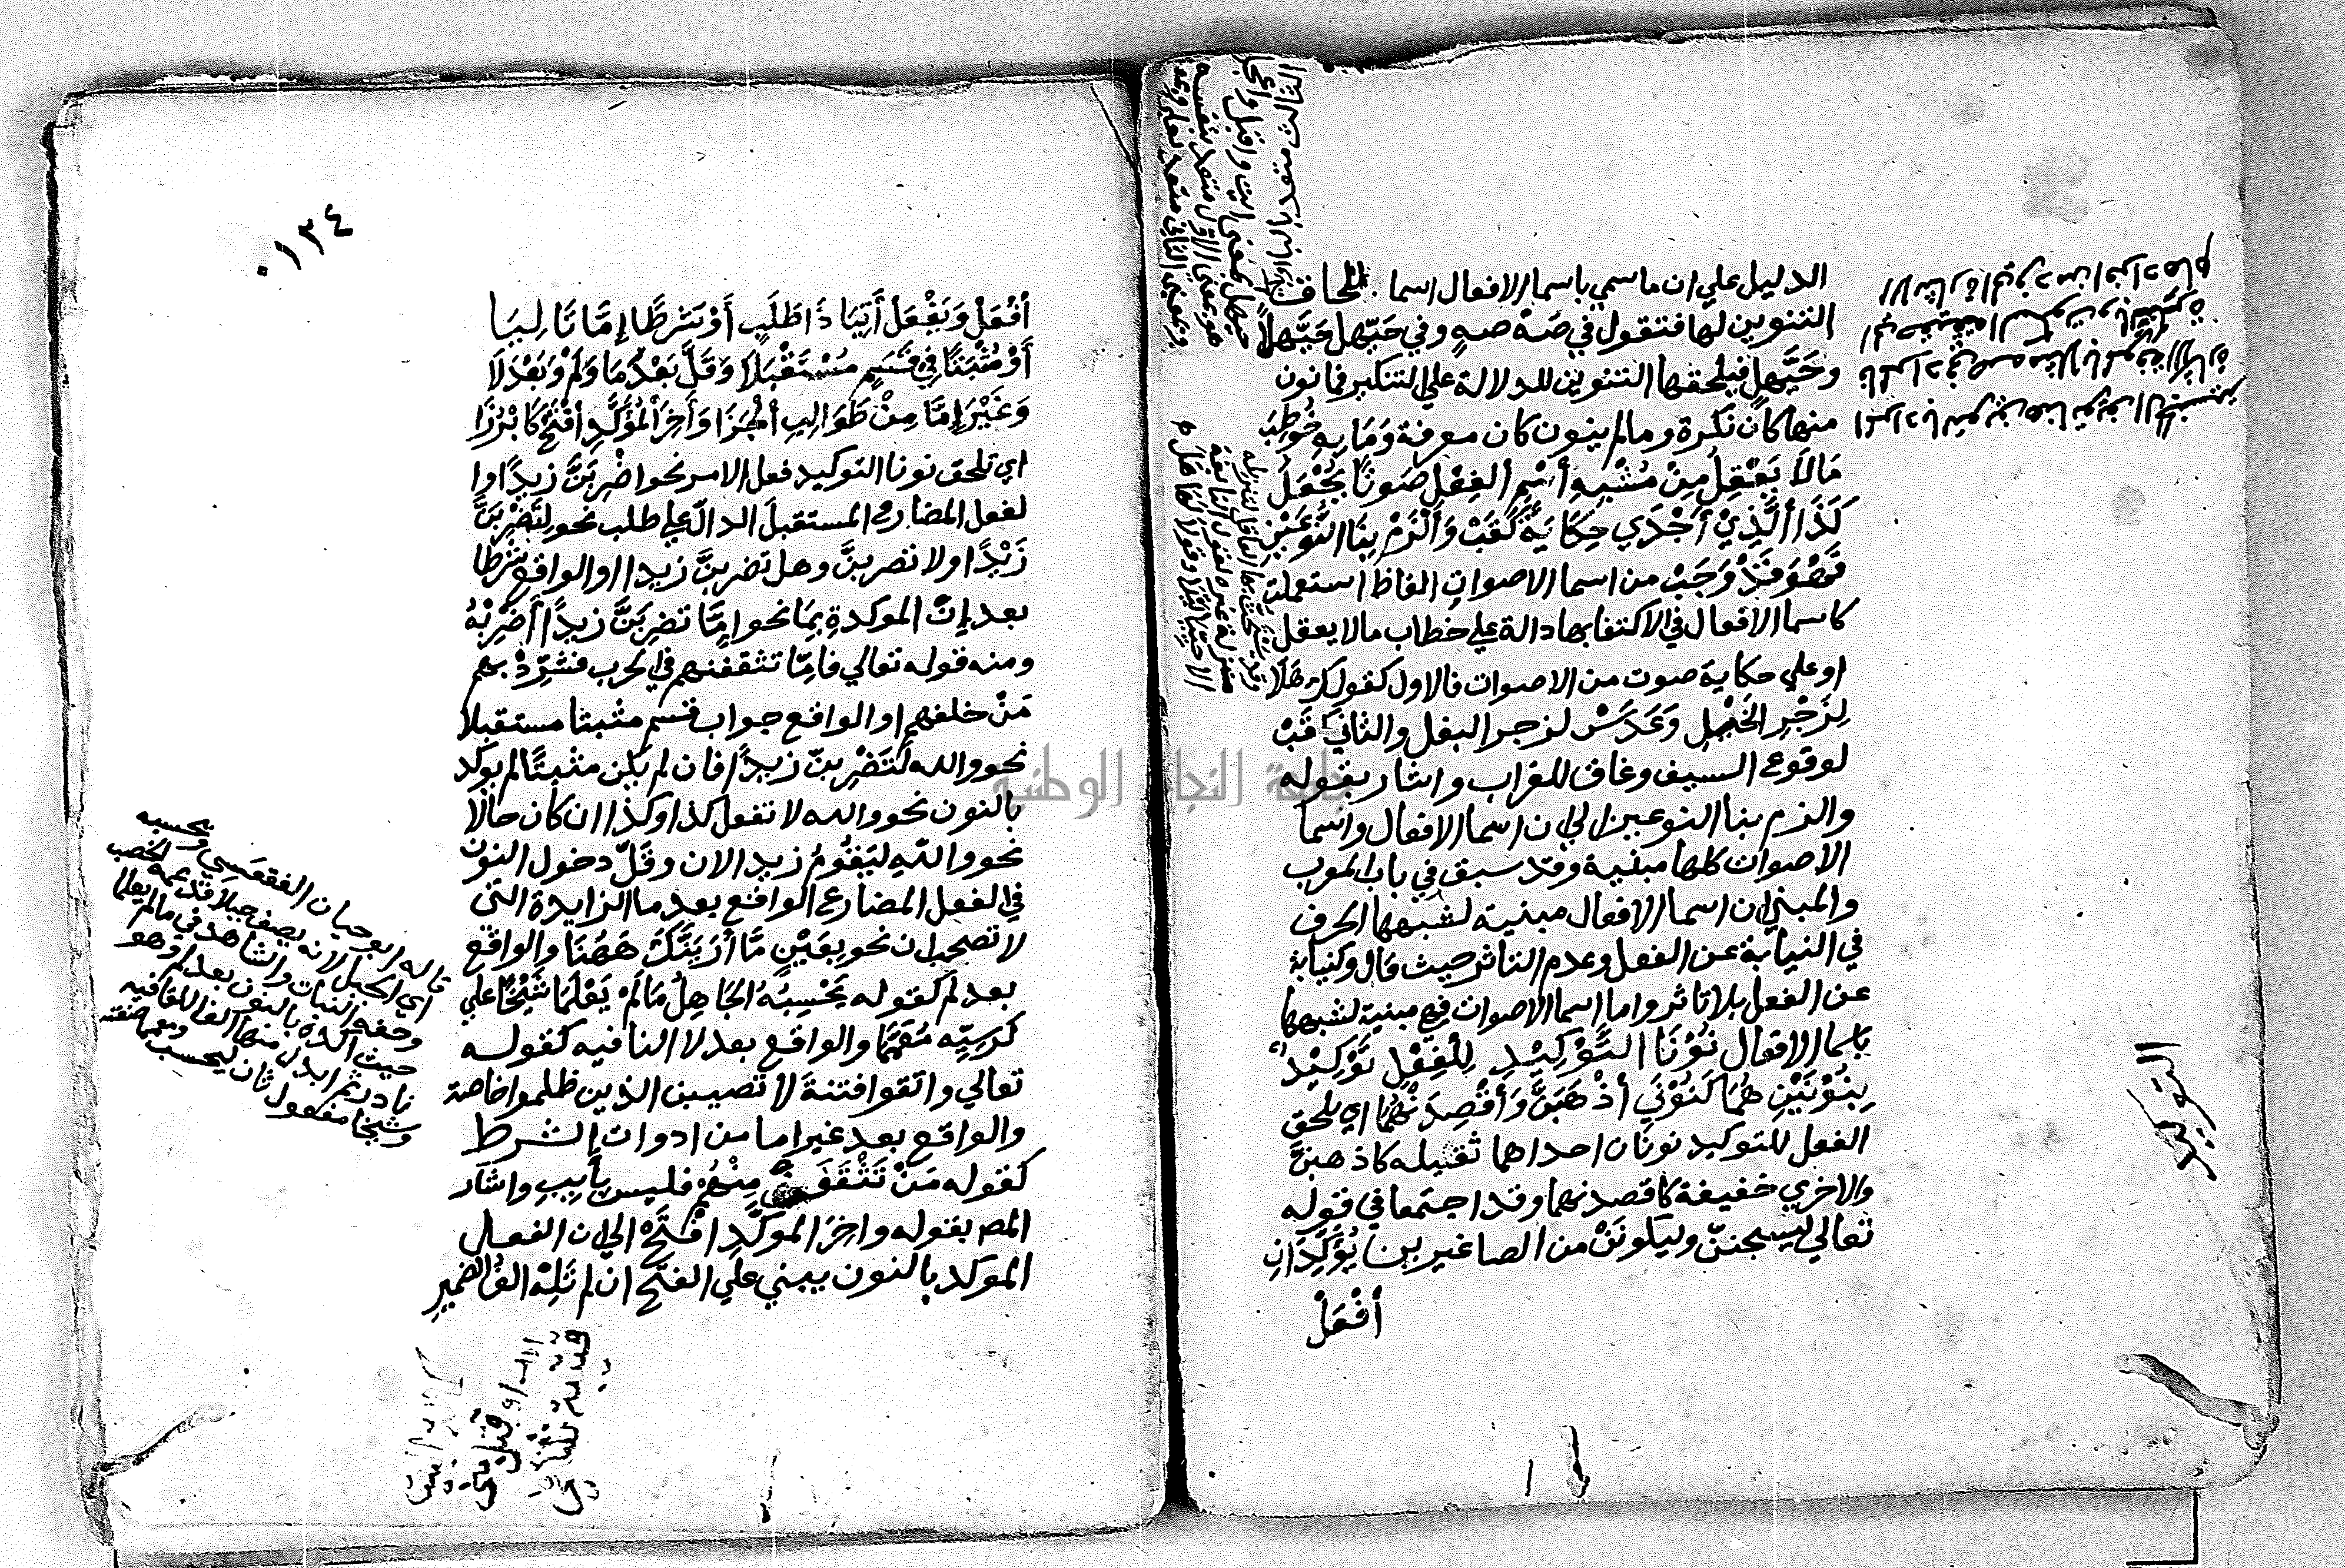 الدليل علي ان ما سمي باسما الافعال اسما لحاق
التنوين لها فتقول في صَهْ صهٍ وفي حَيَّهل حَيَّهلاً
وحَيَّهلٍ فيلحقها التنوين للدلالة علي التنكير فما نون
منها كان نكرة وما لم ينون كان معرفة وَمَا بِهِ خُوطِبَ
مَا لَا يَعْقِلُ مِنْ مُشْبِهِ أسْمِ ألفِعْلِ صَوتًا يُجْعَلُ
كَذَا ألَّذِيْ أجْدَي حِكَايَةً كَقَبْ وَالْزَمْ بِنَا النَّوْعَيْنِ
فَهْوَ قَدْ وَجَبْ من اسما الاصوات الفاظ استعملت
كاسما الافعال في الاكتفا بها دالة علي خطاب ما لا يعقل
او علي حكاية صوت من الاصوات فالاول كقولك هَلَا
لِزَجْرِ الخَيْلِ وَعَدَسْ لزجر البغل والثاني كَقَبْ
لوقوع السيف وغاق للغراب واشار بقوله
والزم بنا النوعين الي ان اسما الافعال واسما
الاصوات كلها مبنية وقد سبق في باب المعرب
والمبني ان اسما الافعال مبنية لشبهها الحرف
في النيابة عن الفعل وعدم التاثر حيث قال وكنيابة
عن الفعل بلا تاثر واما اسما الاصوات فهي مبنية لشبهها
باسما الافعال نُوْنَا التَّوْكِيْدِ لِلْفِعْلِ تَوْكِيْدٌ
بِنُوْنَيْنِ هُمَا كَنُوْنَي أذْهَبَنَّ وَأقْصِدَنْهُمَا اي يلحق
الفعل للتوكيد نونان احداهما ثقيله كاذهبنَّ
والاخري خفيفة كاقصدنهما وقد اجتمعا في قوله
تعالي ليسجننّ وليكونَنْ من الصاغرين يُؤَكِّدَانِ
أفْعَلْ
التوكيد
٠١٣٤
أفْعَلْ وَيَفْعَلْ أَتِيَا ذَا طَلَبٍ أوْ شَرْطًا إمَّا تَالِيَا
أَوْ مُثْبَتًا فِي قَسَمٍ مُسْتَقْبَلَا وَقَلَّ بَعْدَ مَا وَلَمْ وَبَعْدَ لَا
وَغَيْرِ إِمَّا مِنْ طَوَالِبِ ألْجَزَا وَأخِرَ ألْمُؤَكَّدِ أفْتَحْ كَابْرُزَا
اي تلحق نونا التوكيد فعل الامر نحو اضْرِبَنَّ زيدًا وا
لفعل المضارع المستقبل الدالّ علي طلب نحو لِتَضْرِبَنَّ
زَيْدًا ولا تضربنَّ وهل تضربنَّ زيدا او الواقع شرطا
بعد إِنْ الموكدةِ بِمَا نحو إمَّا تضرِبَنَّ زيدًا أَضْرِبْهُ
ومنه قوله تعالي فامّا تثقفنهم في الحرب فشرّدْ بهم
مَنْ خلفهم او الواقع جواب قسم مثبتا مستقبلا
نحو والله لَتَضْرِبنّ زيدًا فان لم يكن مثبتًا لم يوكد
بالنون نحو والله لا تفعل كذا وكذا ان كان حالا
نحو واللهِ ليَقُومُ زيد الان وقَلّ دخول النون
في الفعل المضارع الواقع بعد ما الزايدة التي
لا تصحب ان نحو بِعَيْنٍ مَّا أَرَيَنَّكَ هَهُنَا والواقع
بعد لم كقوله يَحْسِبُهُ الجَاهِلُ مَا لَمْ يَعْلَمَا شَيْخًا علي
كرسِيّهِ مُعَمَّمَا والواقع بعد لا النافيه كقوله
تعالي واتقوا فتنةً لا تصيبن الذين ظلموا خاصة
والواقع بعد غير اما من ادوات الشرط
كقوله مَنْ تَثْقَفَنْ مِنْهُمْ فليس بِآيِبِ واشار
المص بقوله واخِرَ الموكّدِ افْتَحْ الي ان الفعل
الموكد بالنون يبني علي الفتح ان لم تَلِهْ الفُ الضمير
قاله ابو حيان الفقعسي ويحسبه
اي الجبل لانه يصف جبلا قد عمه الخصب
وحفه النبات والشاهد في ما لم يعلما
حيث اكده بالنون بعد لم وهو
نادر ثم ابدل منها الفا للقافيه
وشيخا مفعول ثان ليحسب ومعمما صفته